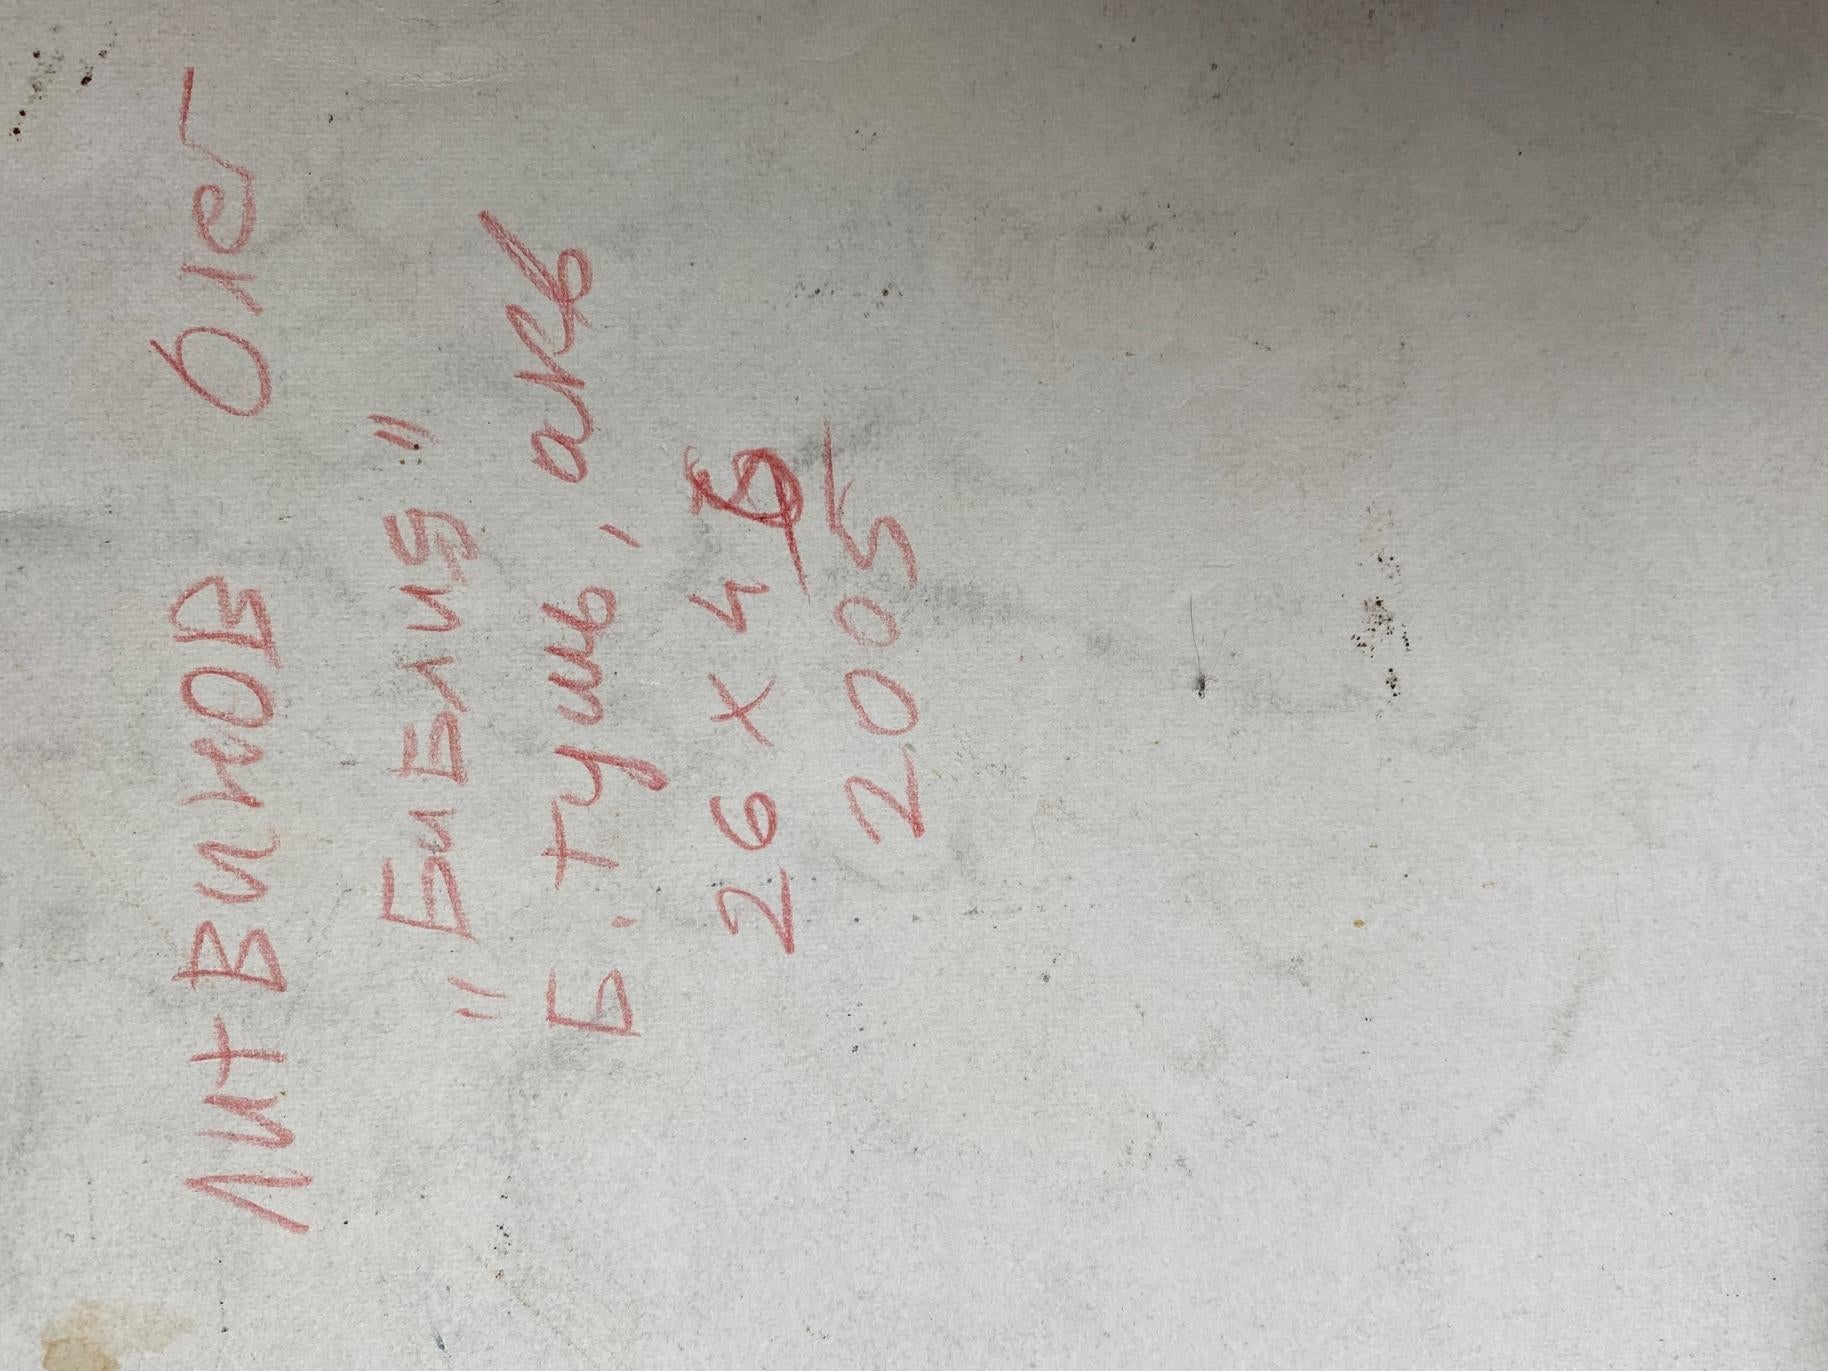 Литвинов Олег
"Библия"
Б. тушь, акв
26 х 45
2005